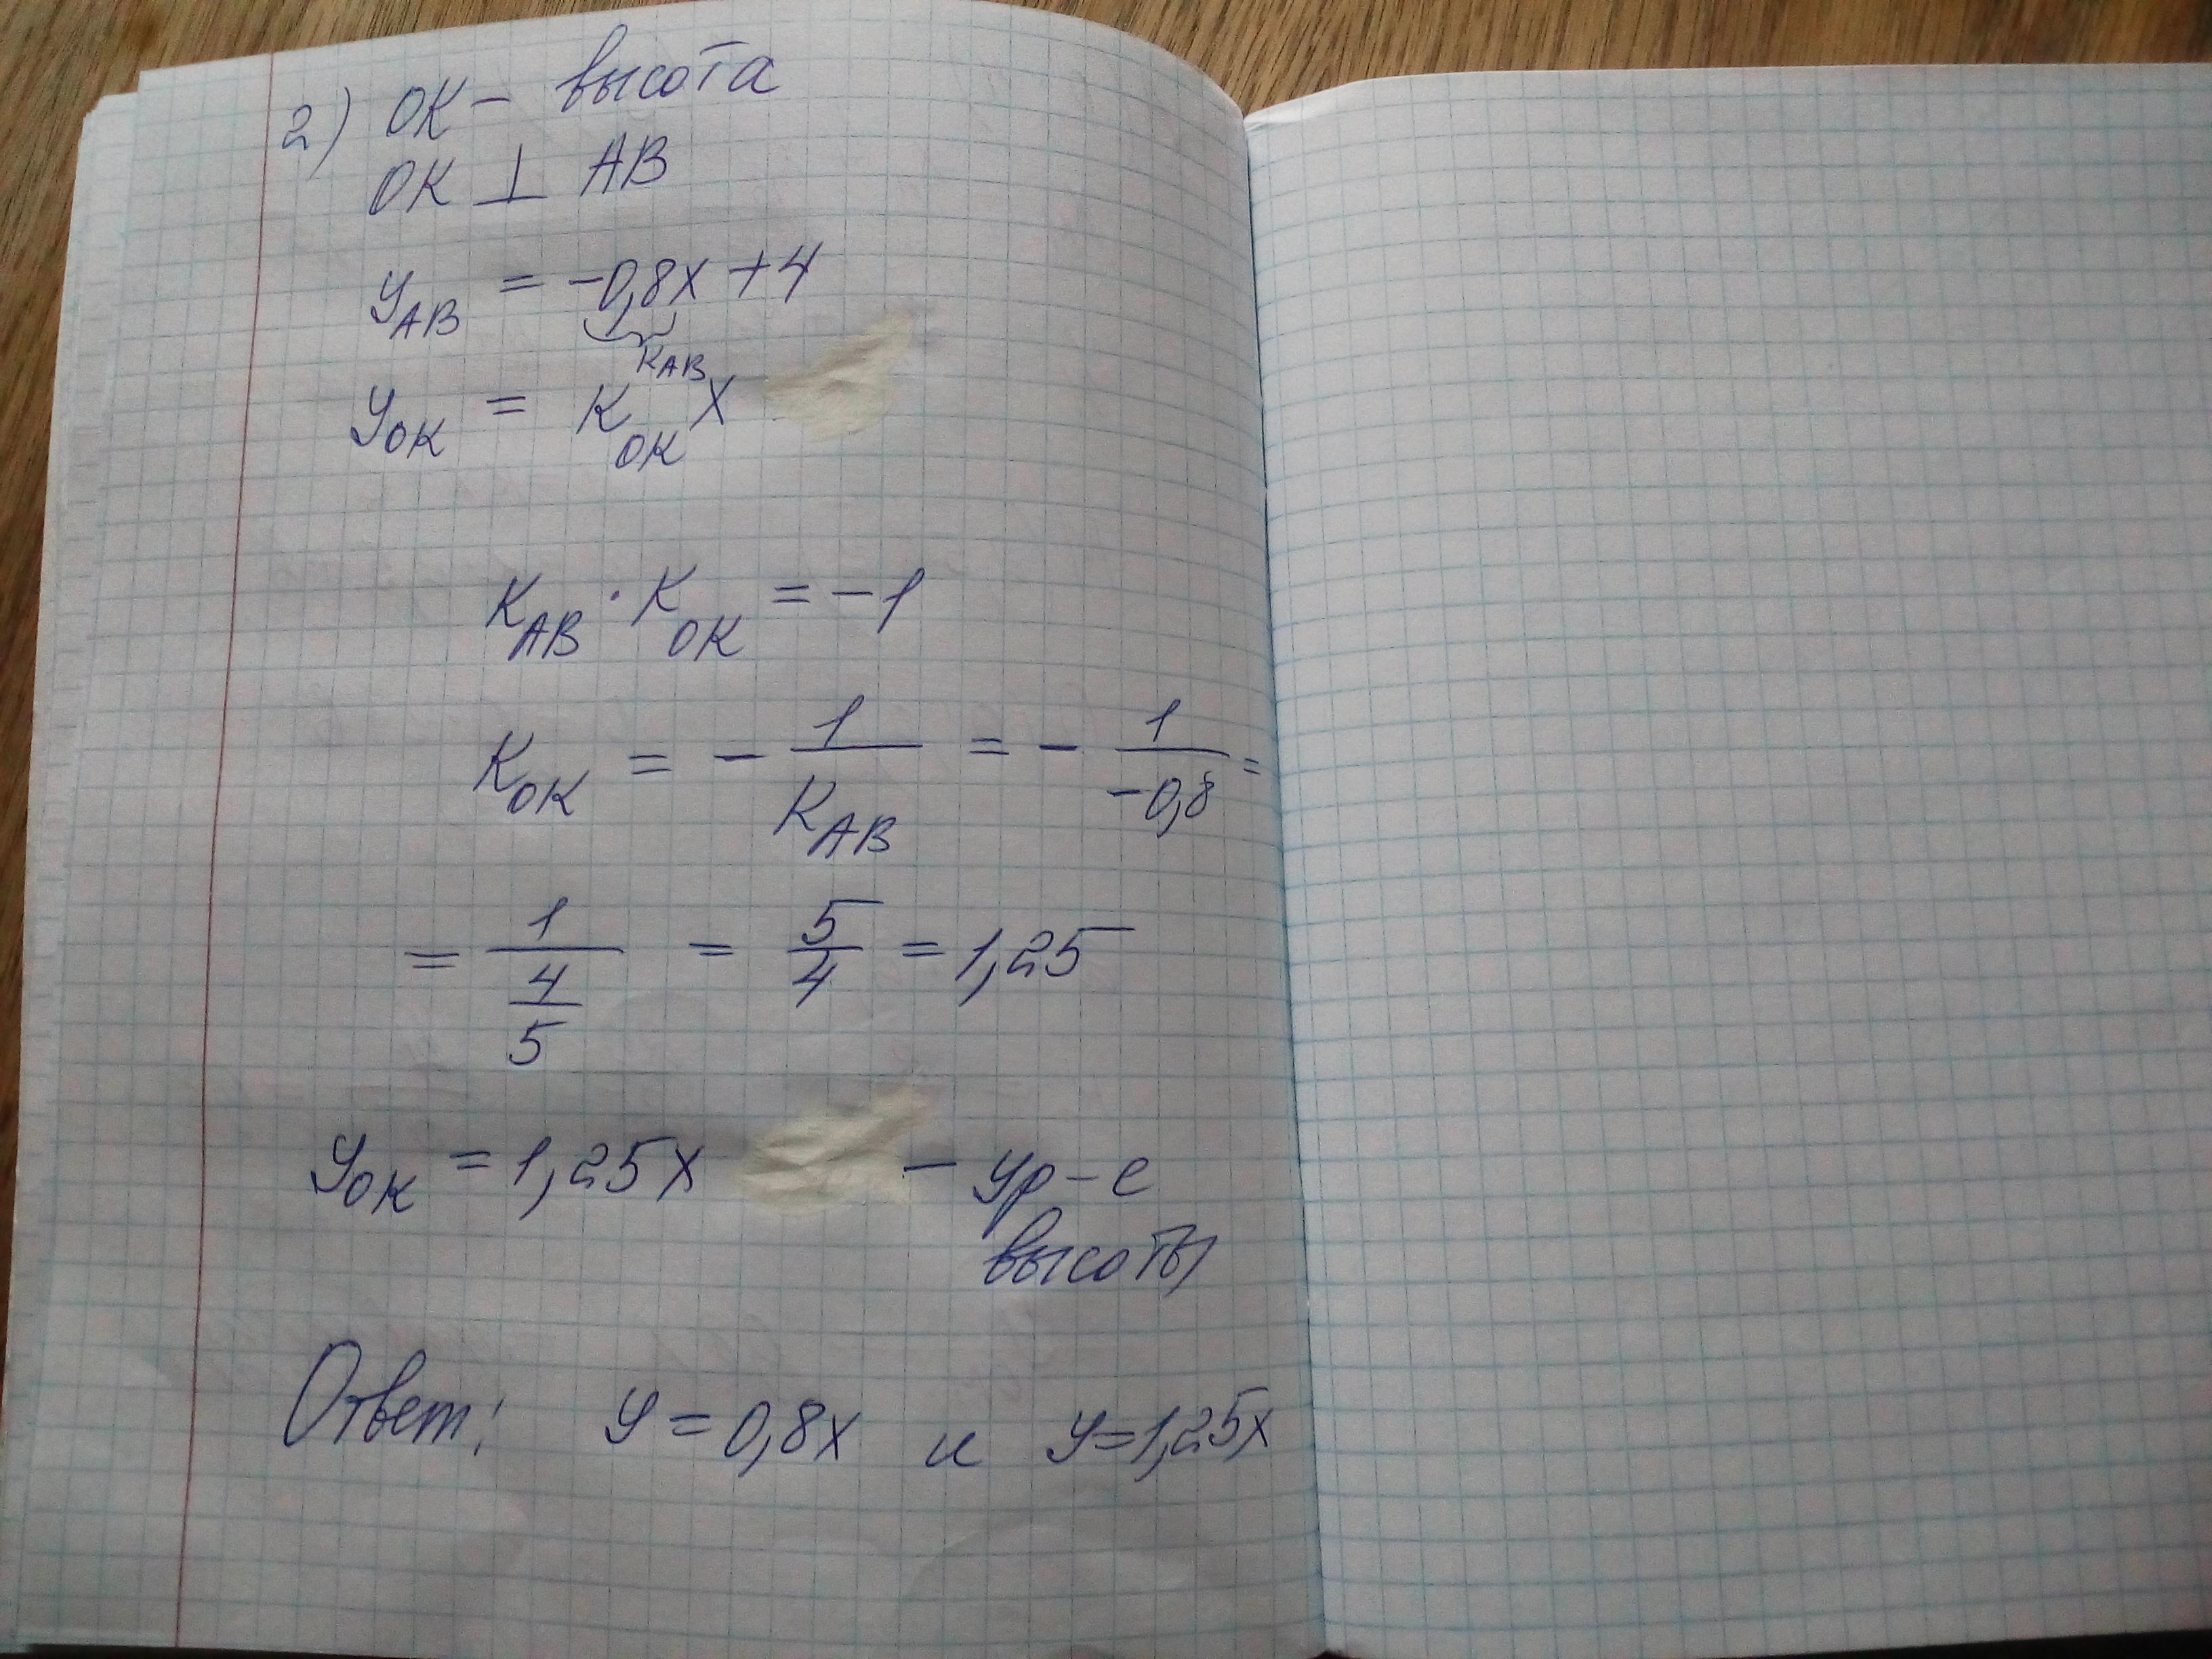 2) OK – высота
OK ⊥ AB
y_AB = -0,8x + 4
K_AB
y_OK = K_OK x
K_AB · K_OK = -1
K_OK = - 1/K_AB = - 1/-0,8 =
= 1/(4/5) = 5/4 = 1,25
y_OK = 1,25x – ур-е
высоты
Ответ: y = 0,8x и y=1,25x